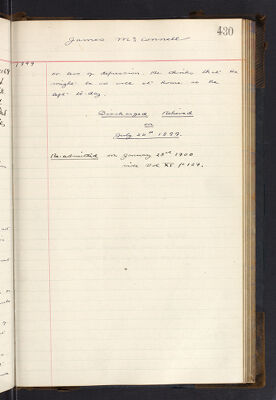 430
James McConnell
1899
or less of depression. He thinks that he
might be as well at home as he
is to-day.
Discharged Relieved
on
July 26th 1899.
Re-admitted on January 23rd 1900
vide Vol XI p 127.